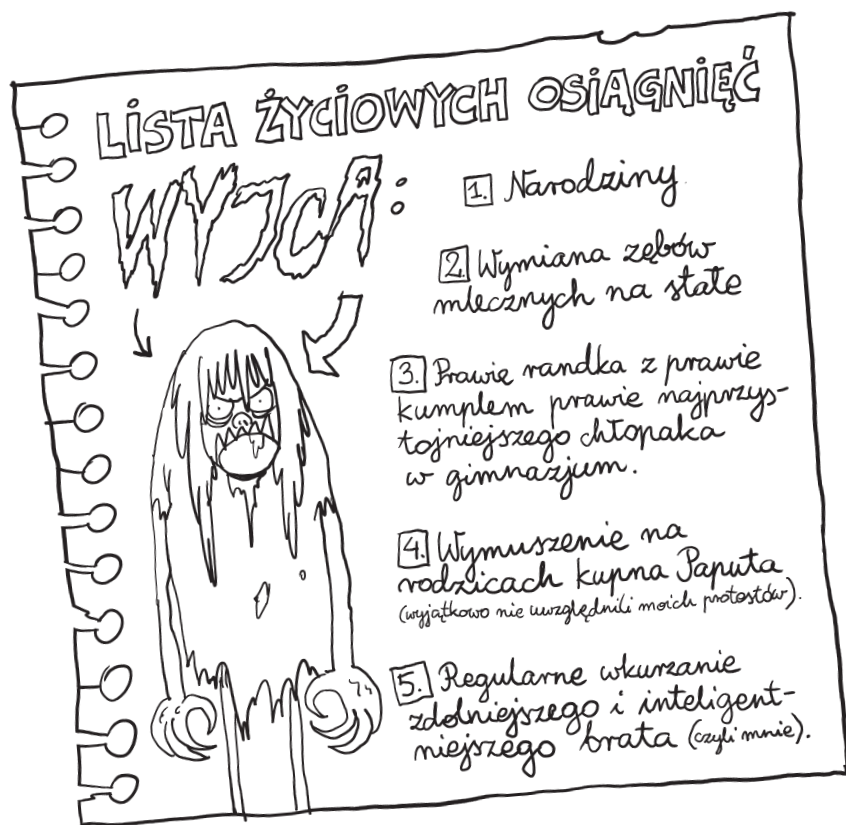 LISTA ŻYCIOWYCH OSIĄGNIĘĆ
WYJCA:
1. Narodziny
2. Wymiana zębów
mlecznych na stałe
3. Prawie randka z prawie
kumplem prawie najprzys-
tojniejszego chłopaka
w gimnazjum.
4. Wymuszenie na
rodzicach kupna Paputa
(wyjątkowo nie uwzględnili moich protestów).
5. Regularne wkurzanie
zdolniejszego i inteligent-
niejszego brata (czyli mnie).